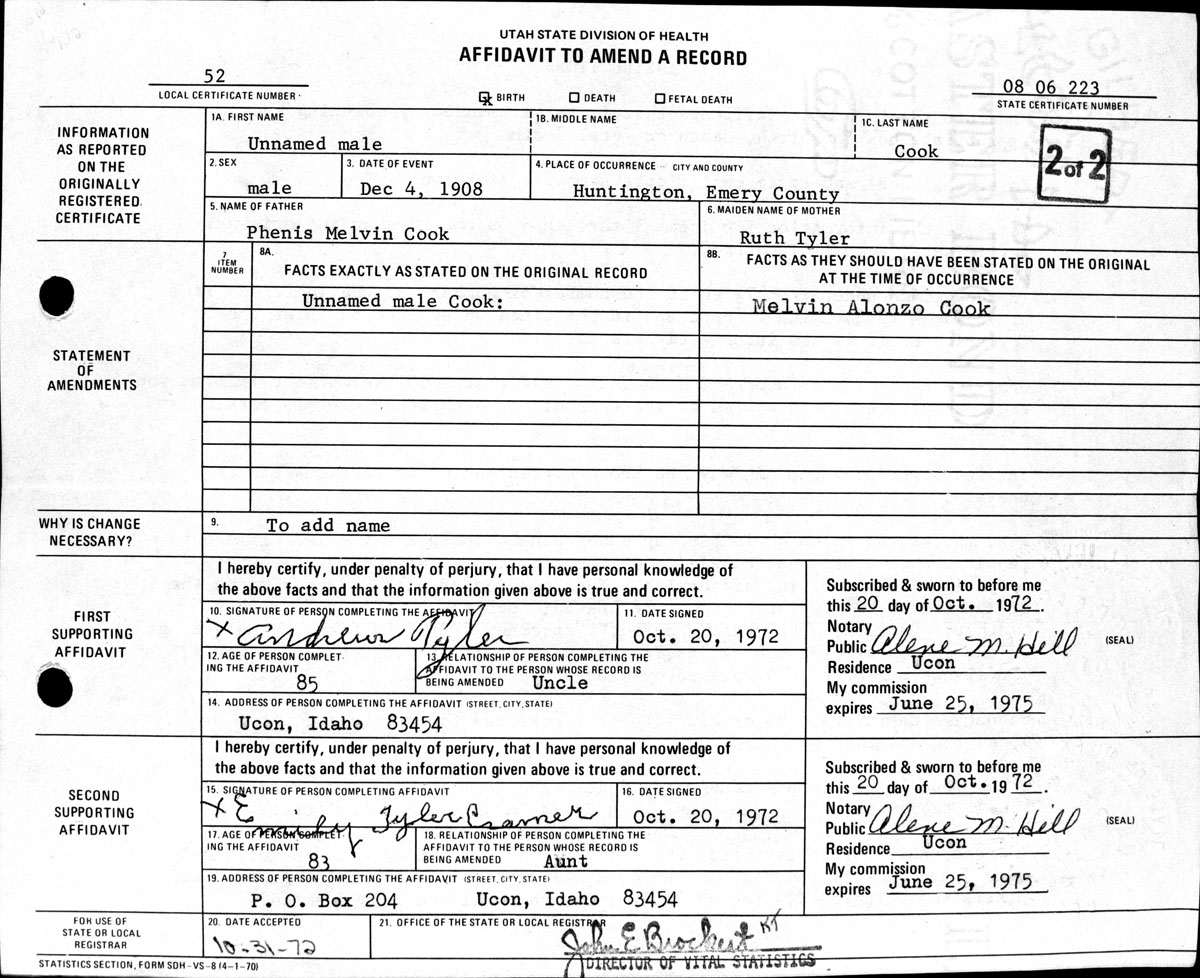 UTAH STATE DIVISION OF HEALTH
AFFIDAVIT TO AMEND A RECORD
52
LOCAL CERTIFICATE NUMBER
BIRTH DEATH FETAL DEATH
08 06 223
STATE CERTIFICATE NUMBER
2 of 2
INFORMATION
AS REPORTED
ON THE
ORIGINALLY
REGISTERED
CERTIFICATE
1A. FIRST NAME
Unnamed male
1B. MIDDLE NAME
1C. LAST NAME
Cook
2. SEX
male
3. DATE OF EVENT
Dec 4, 1908
4. PLACE OF OCCURRENCE - CITY AND COUNTY
Huntington, Emery County
5. NAME OF FATHER
Phenis Melvin Cook
6. MAIDEN NAME OF MOTHER
Ruth Tyler
STATEMENT
OF
AMENDMENTS
7
ITEM
NUMBER
8A.
FACTS EXACTLY AS STATED ON THE ORIGINAL RECORD
8B.
FACTS AS THEY SHOULD HAVE BEEN STATED ON THE ORIGINAL
AT THE TIME OF OCCURRENCE
Unnamed male Cook:
Melvin Alonzo Cook
WHY IS CHANGE
NECESSARY?
9.
To add name
FIRST
SUPPORTING
AFFIDAVIT
I hereby certify, under penalty of perjury, that I have personal knowledge of
the above facts and that the information given above is true and correct.
10. SIGNATURE OF PERSON COMPLETING THE AFFIDAVIT
x Andrew Tyler
11. DATE SIGNED
Oct. 20, 1972
12. AGE OF PERSON COMPLET-
ING THE AFFIDAVIT
85
13. RELATIONSHIP OF PERSON COMPLETING THE
AFFIDAVIT TO THE PERSON WHOSE RECORD IS
BEING AMENDED Uncle
14. ADDRESS OF PERSON COMPLETING THE AFFIDAVIT (STREET, CITY, STATE)
Ucon, Idaho 83454
Subscribed & sworn to before me
this 20 day of Oct. 1972.
Notary
Public Alene M. Hill (SEAL)
Residence Ucon
My commission
expires June 25, 1975
SECOND
SUPPORTING
AFFIDAVIT
I hereby certify, under penalty of perjury, that I have personal knowledge of
the above facts and that the information given above is true and correct.
15. SIGNATURE OF PERSON COMPLETING AFFIDAVIT
x E Tyler Cramer
16. DATE SIGNED
Oct. 20, 1972
17. AGE OF PERSON COMPLET-
ING THE AFFIDAVIT
83
18. RELATIONSHIP OF PERSON COMPLETING THE
AFFIDAVIT TO THE PERSON WHOSE RECORD IS
BEING AMENDED Aunt
19. ADDRESS OF PERSON COMPLETING THE AFFIDAVIT (STREET, CITY, STATE)
P. O. Box 204 Ucon, Idaho 83454
Subscribed & sworn to before me
this 20 day of Oct. 1972.
Notary
Public Alene M. Hill (SEAL)
Residence Ucon
My commission
expires June 25, 1975
FOR USE OF
STATE OR LOCAL
REGISTRAR
20. DATE ACCEPTED
10-31-72
21. OFFICE OF THE STATE OR LOCAL REGISTRAR
John E Brockert KT
DIRECTOR OF VITAL STATISTICS
STATISTICS SECTION, FORM SDH-VS-8 (4-1-70)